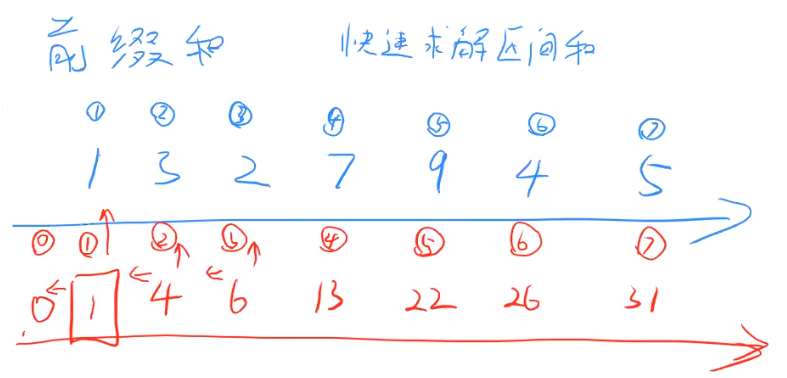 前缀和 快速求解区间和
① ② ③ ④ ⑤ ⑥ ⑦
1 3 2 7 9 4 5
⓪ ① ② ③ ④ ⑤ ⑥ ⑦
0 1 4 6 13 22 26 31